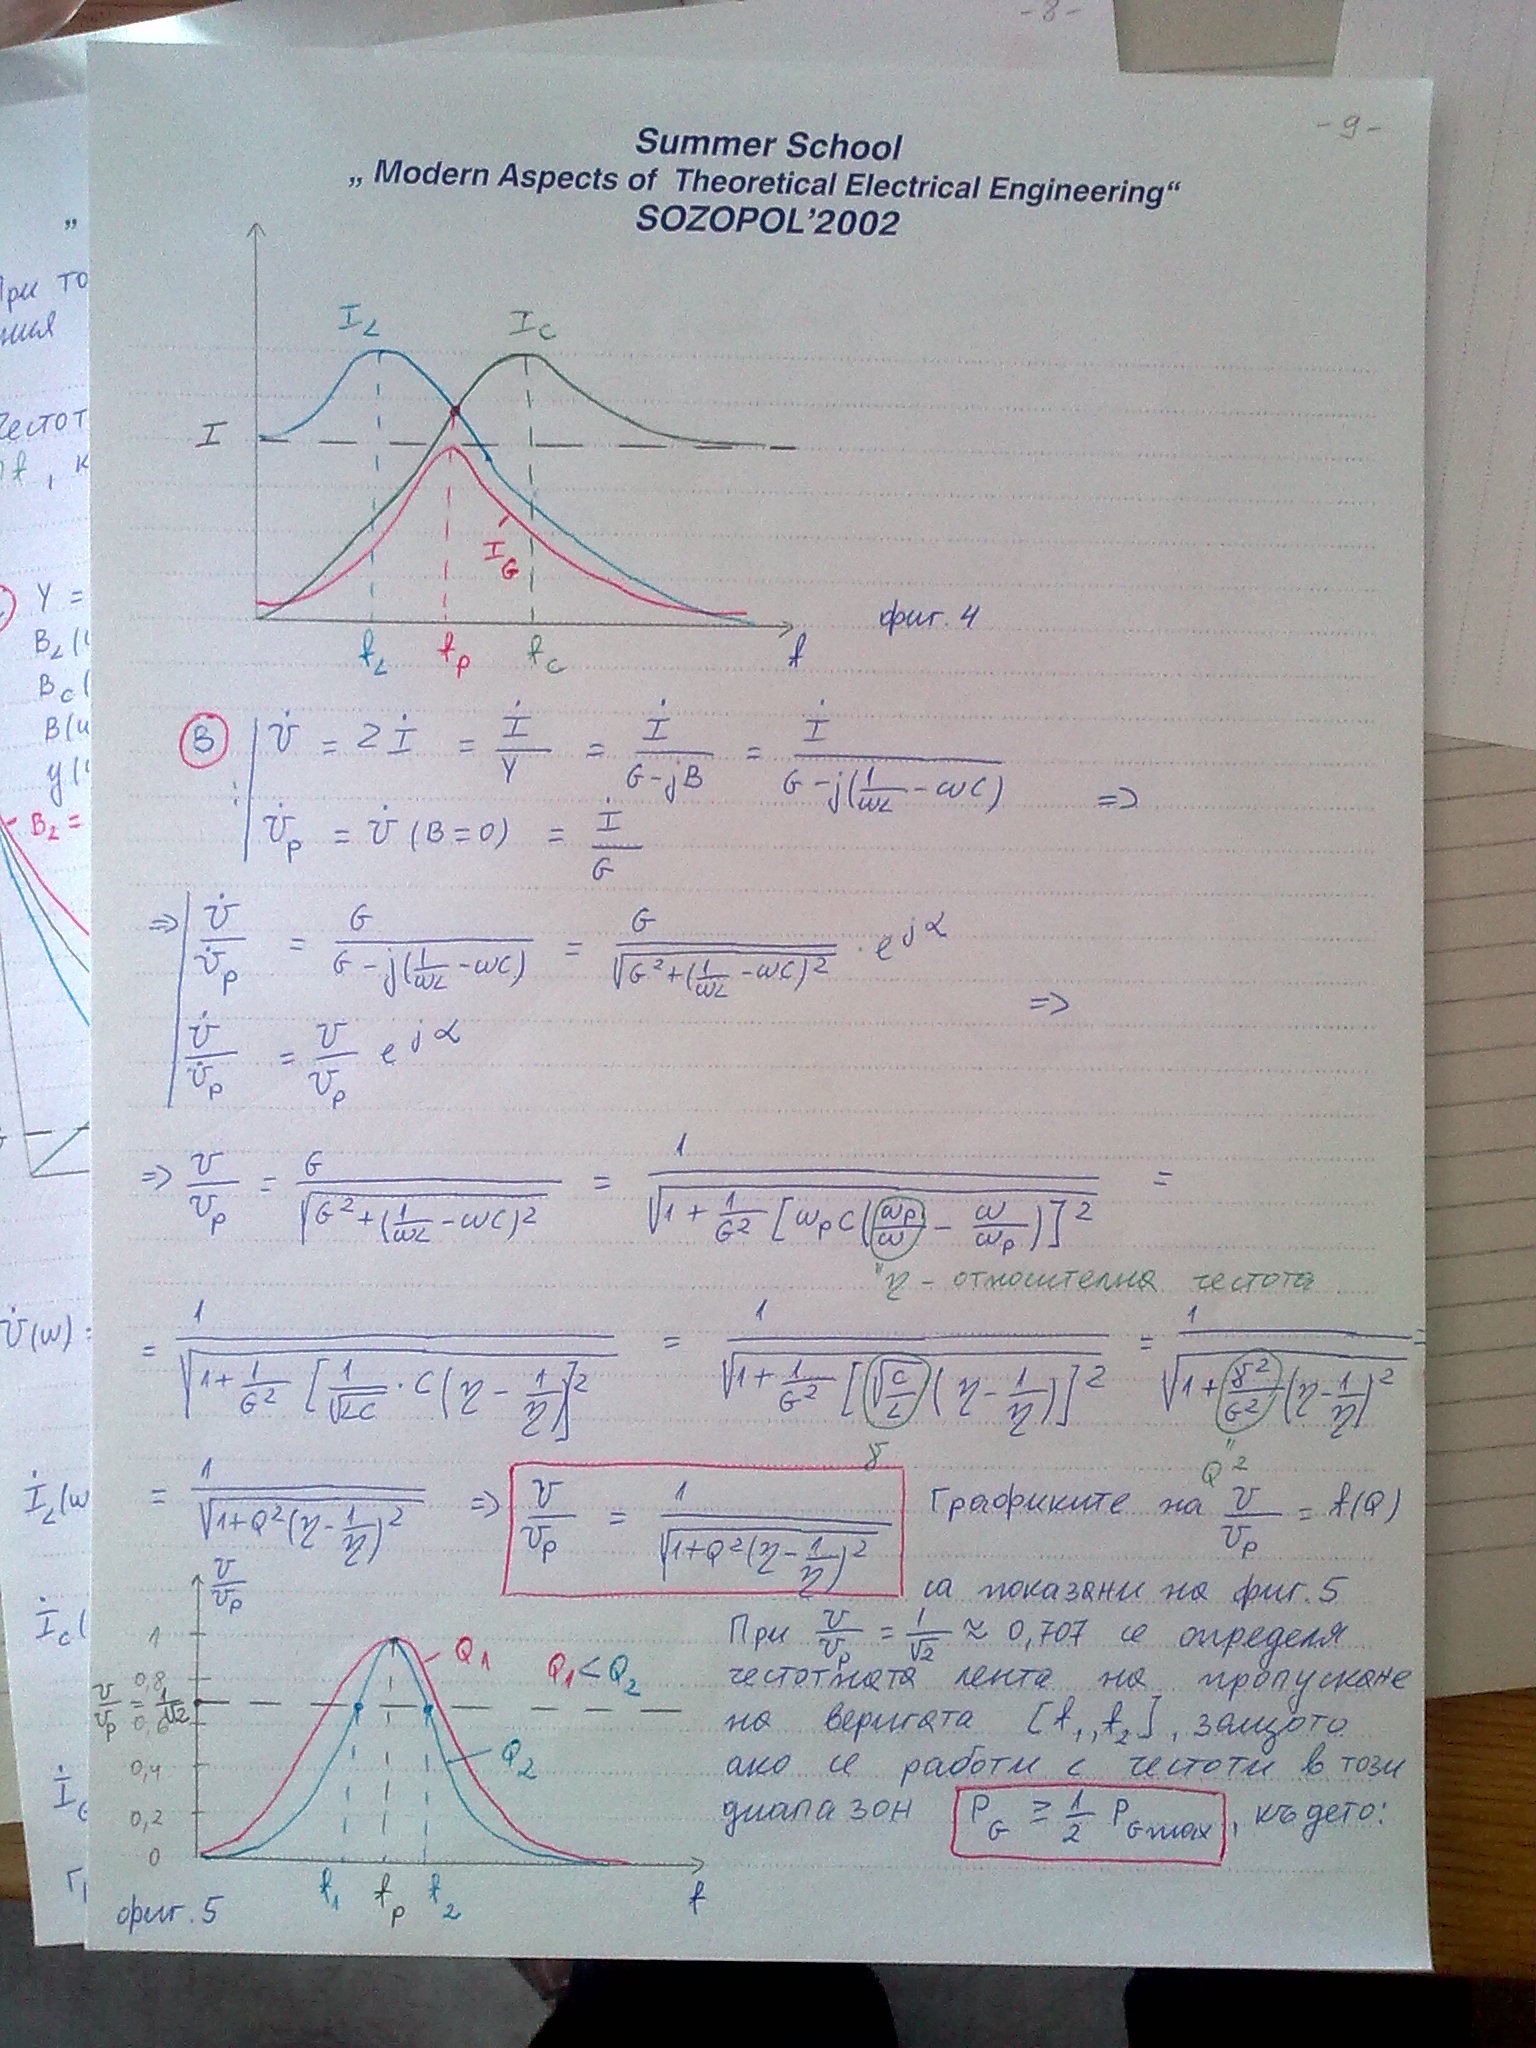 - 8 -
- 9 -
Summer School
„ Modern Aspects of Theoretical Electrical Engineering“
SOZOPOL’2002
I_L I_C
I
I_G
f_L f_p f_C f
фиг. 4
В U̇ = Zİ = İ/Y = İ/(G-jB) = İ/(G-j(1/ωL - ωC)) =>
U̇_p = U̇ (B=0) = İ/G
=> U̇/U̇_p = G/(G-j(1/ωL - ωC)) = G/√(G²+(1/ωL - ωC)²) · e^jα
=>
U̇/U̇_p = U/U_p e^jα
=> U/U_p = G/√(G²+(1/ωL - ωC)²) = 1/√(1+1/G² [ω_p C(ω_p/ω - ω/ω_p)]²) =
"η - относителна честота
= 1/√(1+1/G² [1/√LC · C(η - 1/η)]²) = 1/√(1+1/G² [√(C/L) (η - 1/η)]²) = 1/√(1+γ²/G² (η-1/η)²) =
γ " Q²
= 1/√(1+Q²(η-1/η)²) => U/U_p = 1/√(1+Q²(η-1/η)²) Графиките на U/U_p = f(Q)
са показани на фиг. 5
При U/U_p = 1/√2 ≈ 0,707 се определя
честотната лента на пропускане
на веригата [f₁, f₂], защото
ако се работи с честоти в този
диапазон P_G ≥ 1/2 P_Gmax, където:
U/U_p
1
0,8
U/U_p = 1/√2
0,6
0,4
0,2
0
Q₁ Q₁ < Q₂
Q₂
f₁ f_p f₂ f
фиг. 5
„
При то
ния
Честот
f, к
Y =
B_L(
B_C(
B(ω
y(
B_L =
U̇(ω) =
İ_L(ω
İ_C(
İ_G